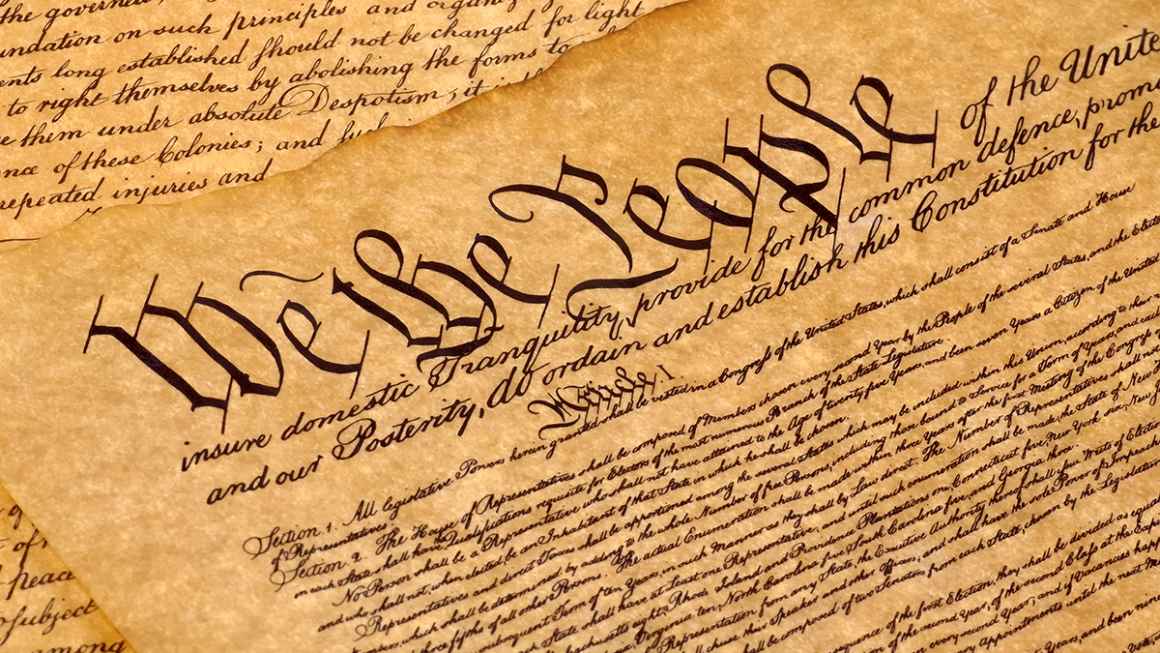 the governed,
undation on such principles and organiz
ents long established should not be changed for light
to right themselves by abolishing the forms to
them under absolute Despotism; it
nce of these Colonies; and such
repeated injuries and
We the People of the Unite
insure domestic Tranquility, provide for the common defence, promo
and our Posterity, do ordain and establish this Constitution for the
Article. I.
Section. 1. All legislative Powers herein granted shall be vested in a Congress of the United States, which shall consist of a Senate and House
of Representatives.
Section. 2. The House of Representatives shall be composed of Members chosen every second Year by the People of the several States, and the Elect
in each State shall have Qualifications requisite for Electors of the most numerous Branch of the State Legislature.
No Person shall be a Representative who shall not have attained to the Age of twenty five Years, and been seven Years a Citizen of the United
who shall not, when elected, be an Inhabitant of that State in which he shall be chosen.
Representatives and direct Taxes shall be apportioned among the several States which may be included within this Union, according to their
which shall be determined by adding to the whole Number of free Persons, including those bound to Service for a Term of Years, and
three fifths of all other Persons. The actual Enumeration shall be made within three Years after the first Meeting of the Congress of
subsequent Term of ten Years, in such Manner as they shall by Law direct. The Number of Representatives shall not
State shall have at Least one Representative; and until such enumeration shall be made, the State of New
Rhode Island and Providence Plantations one, Connecticut five, New York six, New
ten, North Carolina five, South Carolina five, and Georgia three.
Representation from any State, the Executive Authority thereof shall issue Writs of Elect
chuse their Speaker and other Officers; and shall have the sole Power of Impeach
shall be composed of two Senators from each State, chosen by the Legislat
of the first Election, they shall be divided as equal
of the second Year, of the second Class at the Exp
every second Year; and if Vacancies happ
Appointments until the next Me
Years, and been nine
peace
subject
among